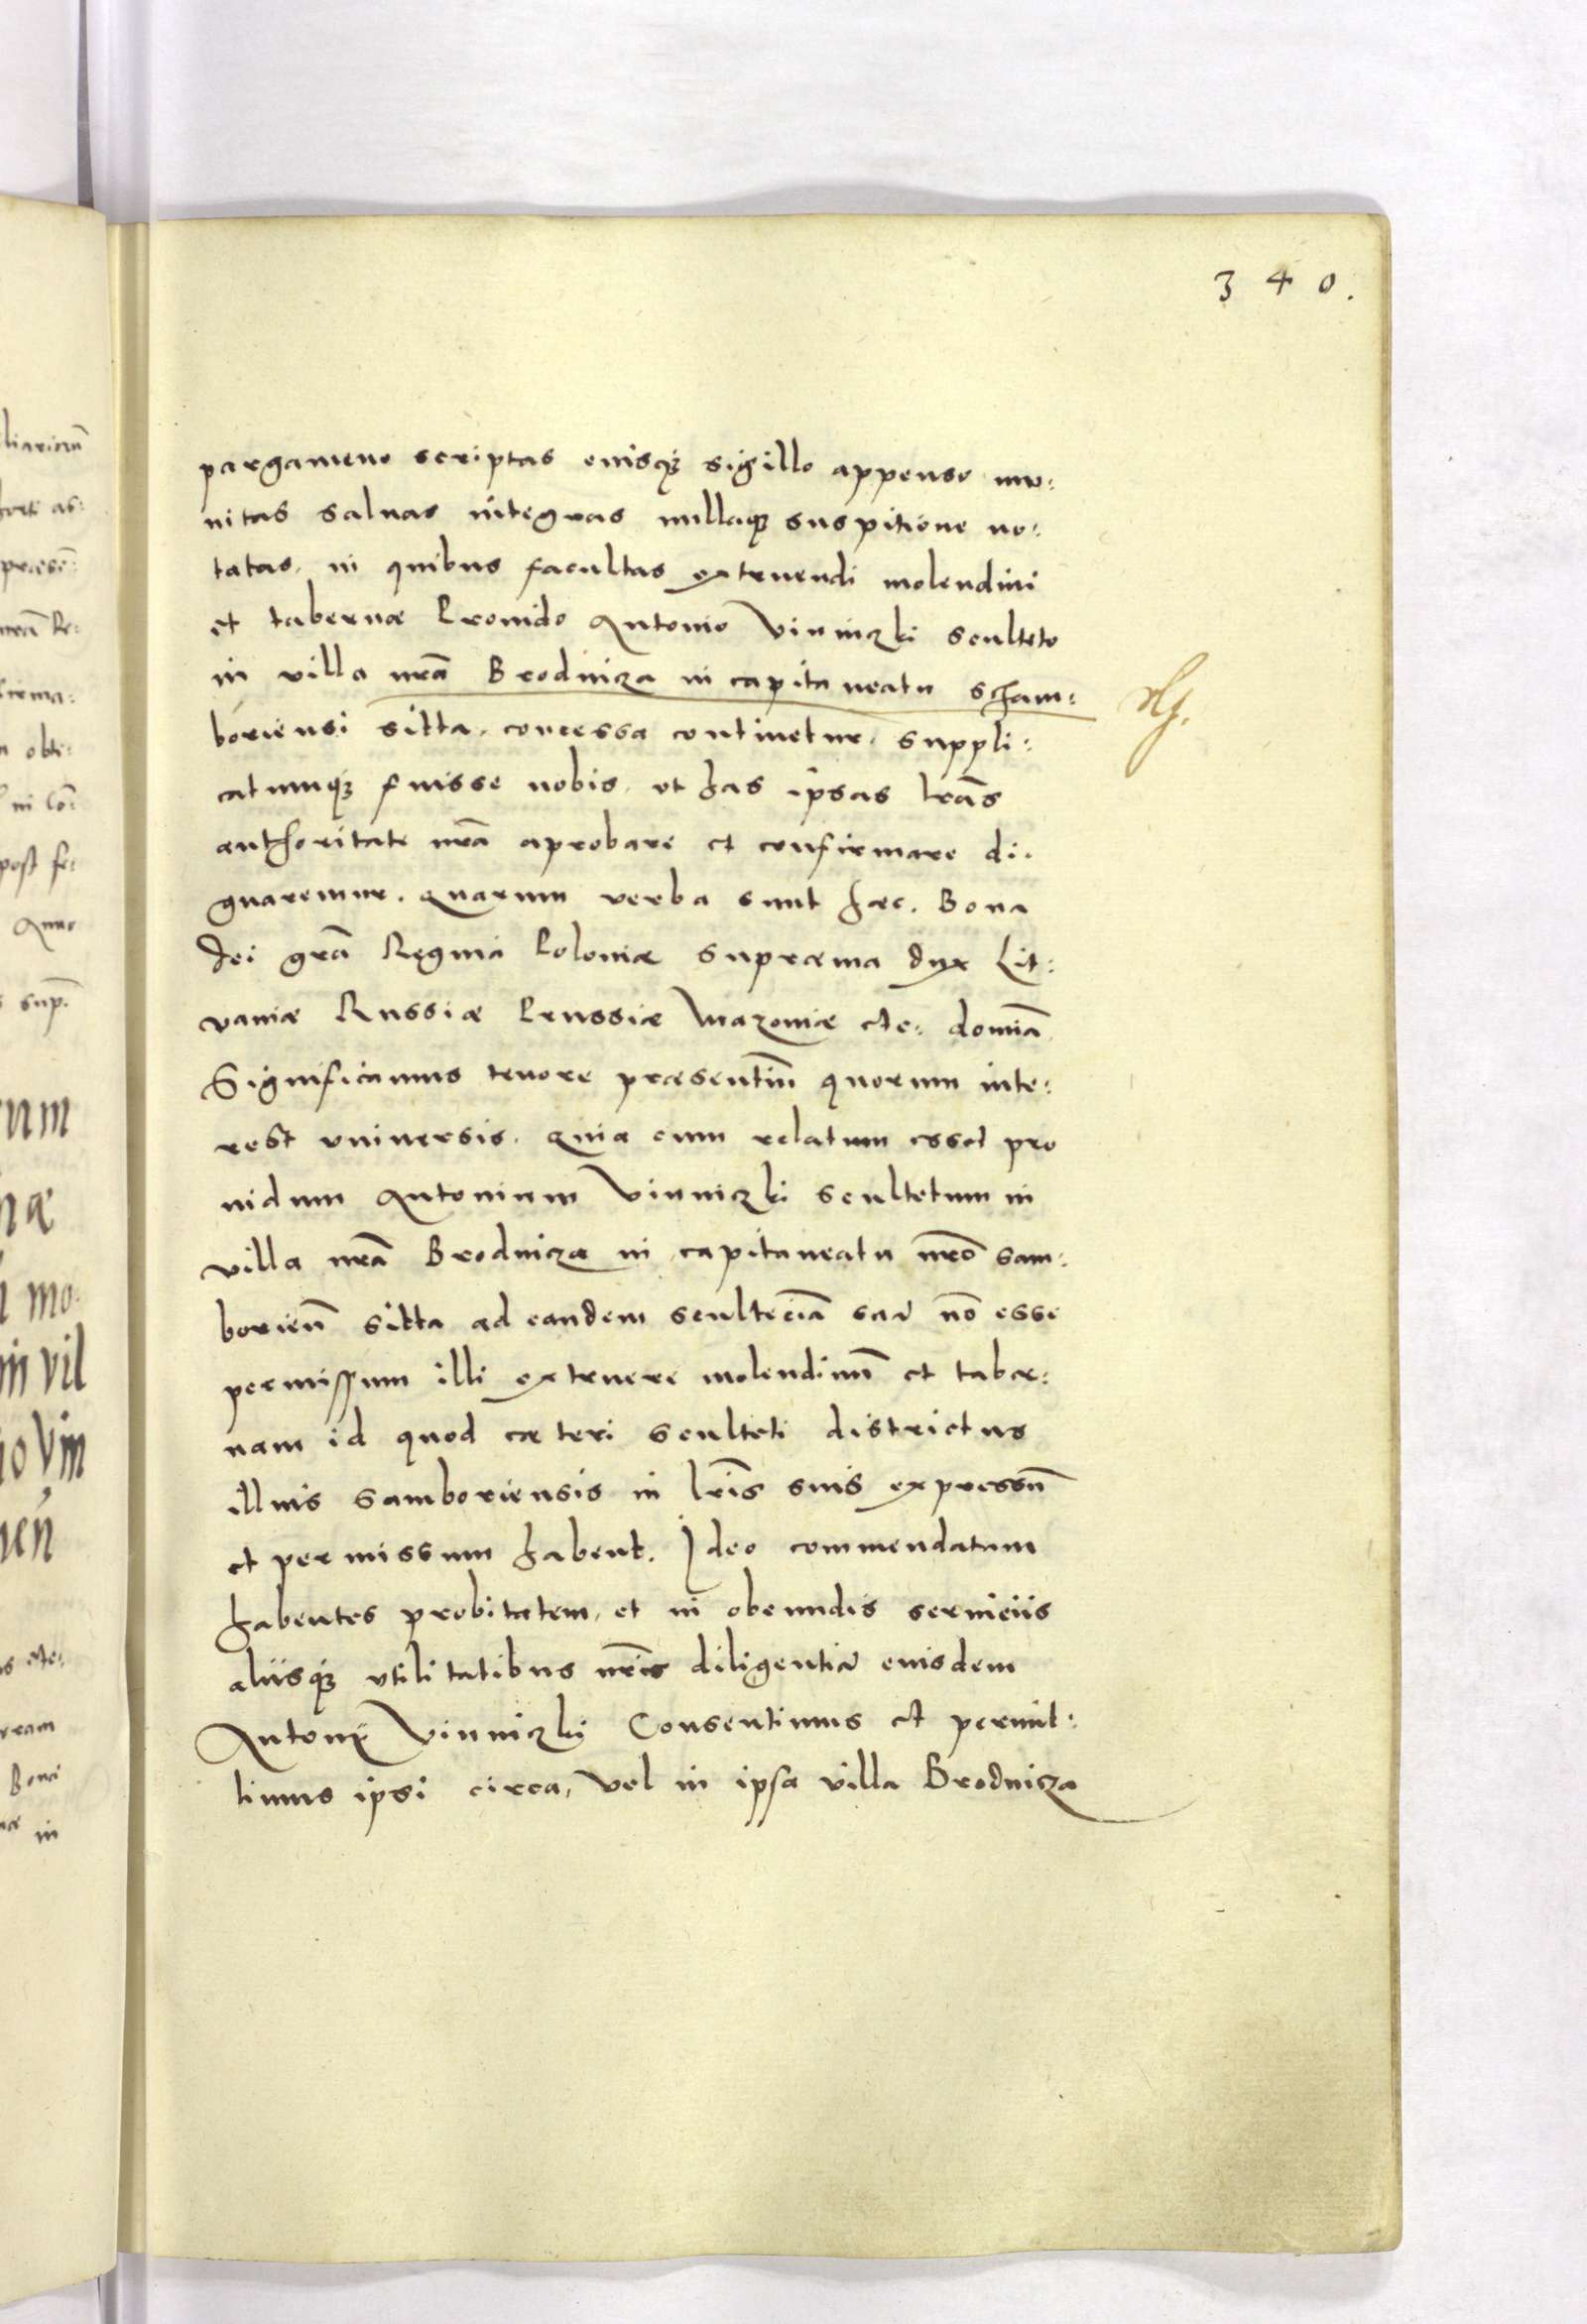 340.
pargameno scriptas euisq₃ sigillo appenso mu:
nitas saluas integras nullaq₃ suspitione no:
tatas. in quibus facultas extruendi molendini
et tabernæ Prouido Antonio Vinniczki sculteto
in villa nrã Brodnicza in capitaneatu scham:
boriensi sitta. concessa continetur. suppli:
catumq₃ fuisse nobis. ut has ip̃sas lrãs
authoritate nrã aprobare et confirmare di:
gnaremur. quarum verba sunt hæc. Bona
dei grã Regina Poloniæ supræma dux Lit:
vaniæ Russiæ Prussiæ Mazoniæ etc: domiã.
Significamus tenore præsentiũ quorum inte:
rest vniuersis. quia cum relatum esset pro
uidum Antonium Vinniczki scultetum in
villa nrã Brodnicza in capitaneatu nrõ sam:
borieñ sitta ad eandem scultetiã suã nõ esse
permissum illi extruere molendinũ et tabær:
nam id quod cæteri sculteti districtus
illius samboriensis in lrĩs suis expressũ
et permissum habent. Ideo commendatum
habentes probitatem. et in obeundis seruiciis
aliisq₃ vtilitatibus nrĩs diligentiã euisdem
Antonij Vinniczkij Consentimus et permit:
timus ipsi circa, vel in ipsa villa Brodnicza